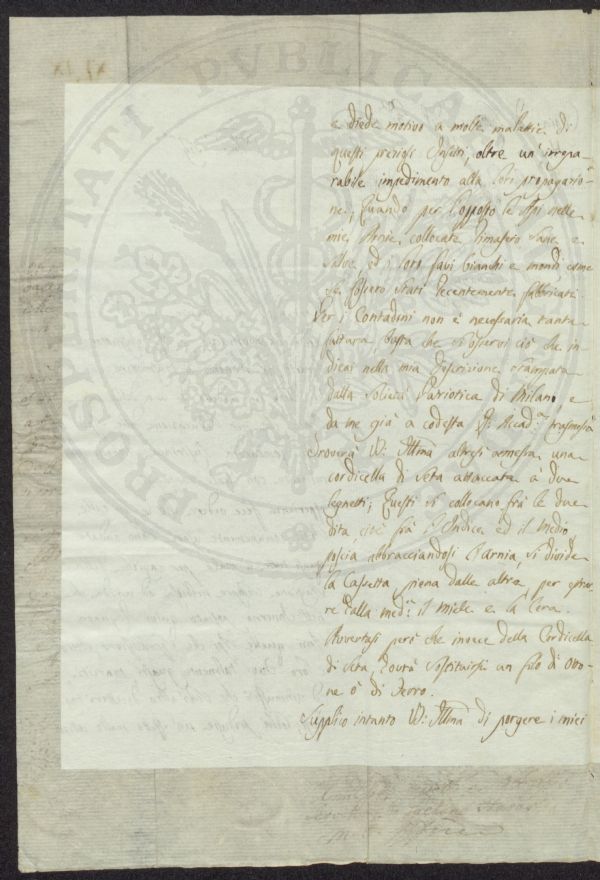 PROSPERITATI PVBLICAE
e diede motivo a molte malattie di
questi preziosi Insetti, oltre un' irrepa-
rabile impedimento alla loro propagazio-
ne, Quando per l'opposto le Api nelle
mie Arnie collocate rimasero Sane e
Salve, ed i loro favi bianchi e mondi come
se fossero stati recentemente fabbricati
Per i Contadini non è necessaria tanta
fattura basta che si osservi ciò che in-
dicai nella mia Descrizione stampata
dalla Società Patriotica di Milano e
da me già a codesta Accad.a trasmessa
Troverà V.S. Ill.ma altresì annessa una
cordicella di Seta attaccata a due
legnetti; Questi si collocano frà le due
dita, cioè frà l'Indice, ed il Medio,
poscia abbracciandosi l'arnia, si divide
la Cassetta piena dalle altre per estrar-
re dalla med.a il Miele e la Cera.
Avvertasi però che invece della Cordicella
di Seta dovrà sostituirsi un filo di Otto-
ne ò di Ferro.
Supplico intanto V.S. Ill.ma di porgere i miei